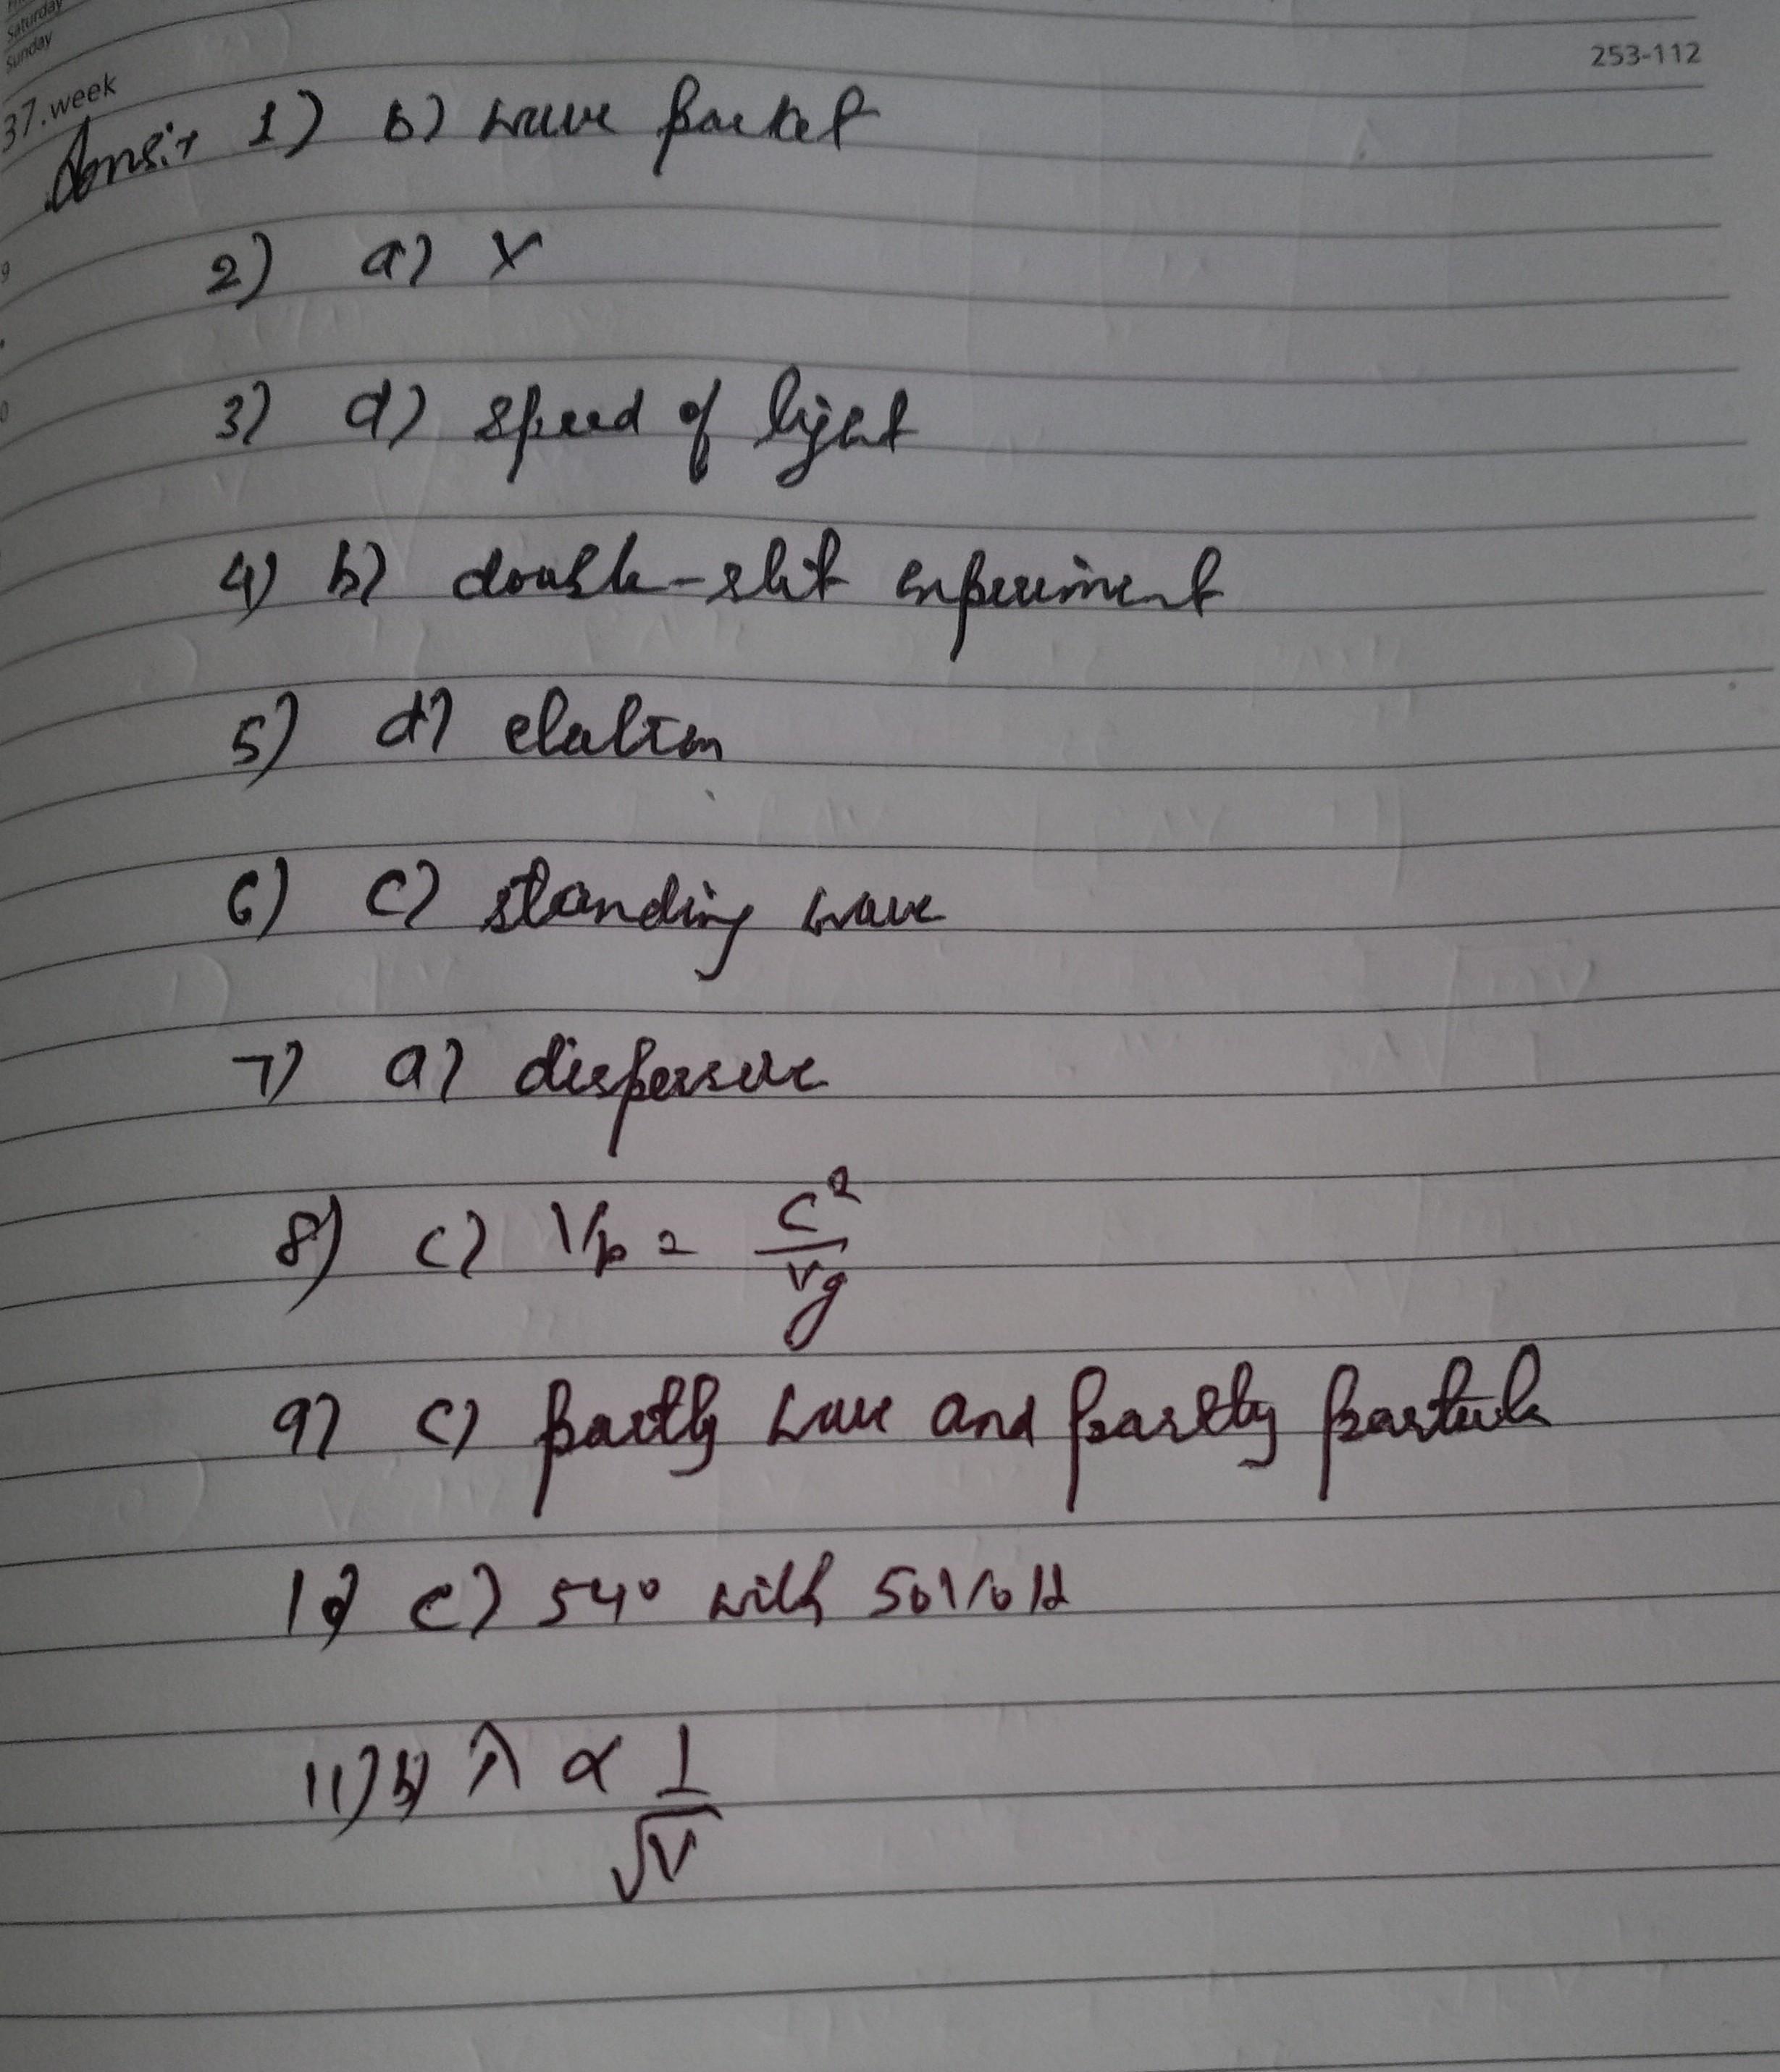 Saturday
Sunday
37.week
253-112
Ans:→ 1) b) wave packet
2) a) x
3) d) speed of light
4) b) double-slit experiment
5) d) electron
6) c) standing wave
7) a) dispersive
8) c) Vp = c²/vg
9) c) partly wave and partly particle
10) c) 54° with 50 Volt
11) b) λ ∝ 1/√V